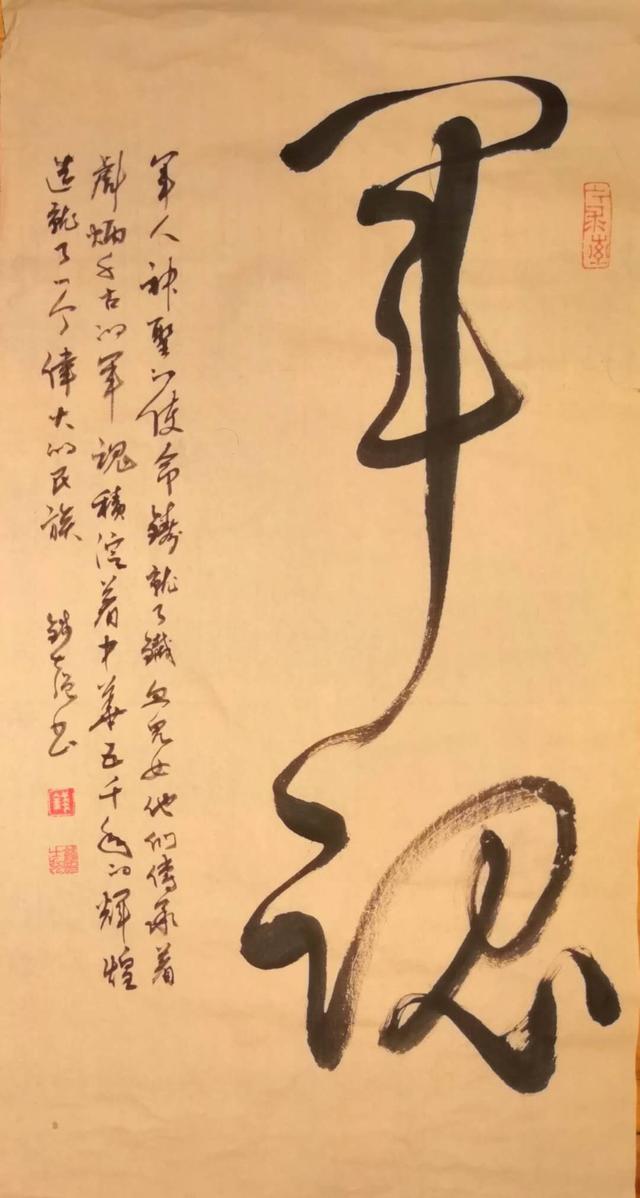 軍魂
軍人神聖的使命鑄就了鐵血兒女他們傳承着
彪炳千古的軍魂積淀着中華五千年的輝煌
造就了一个偉大的民族
書